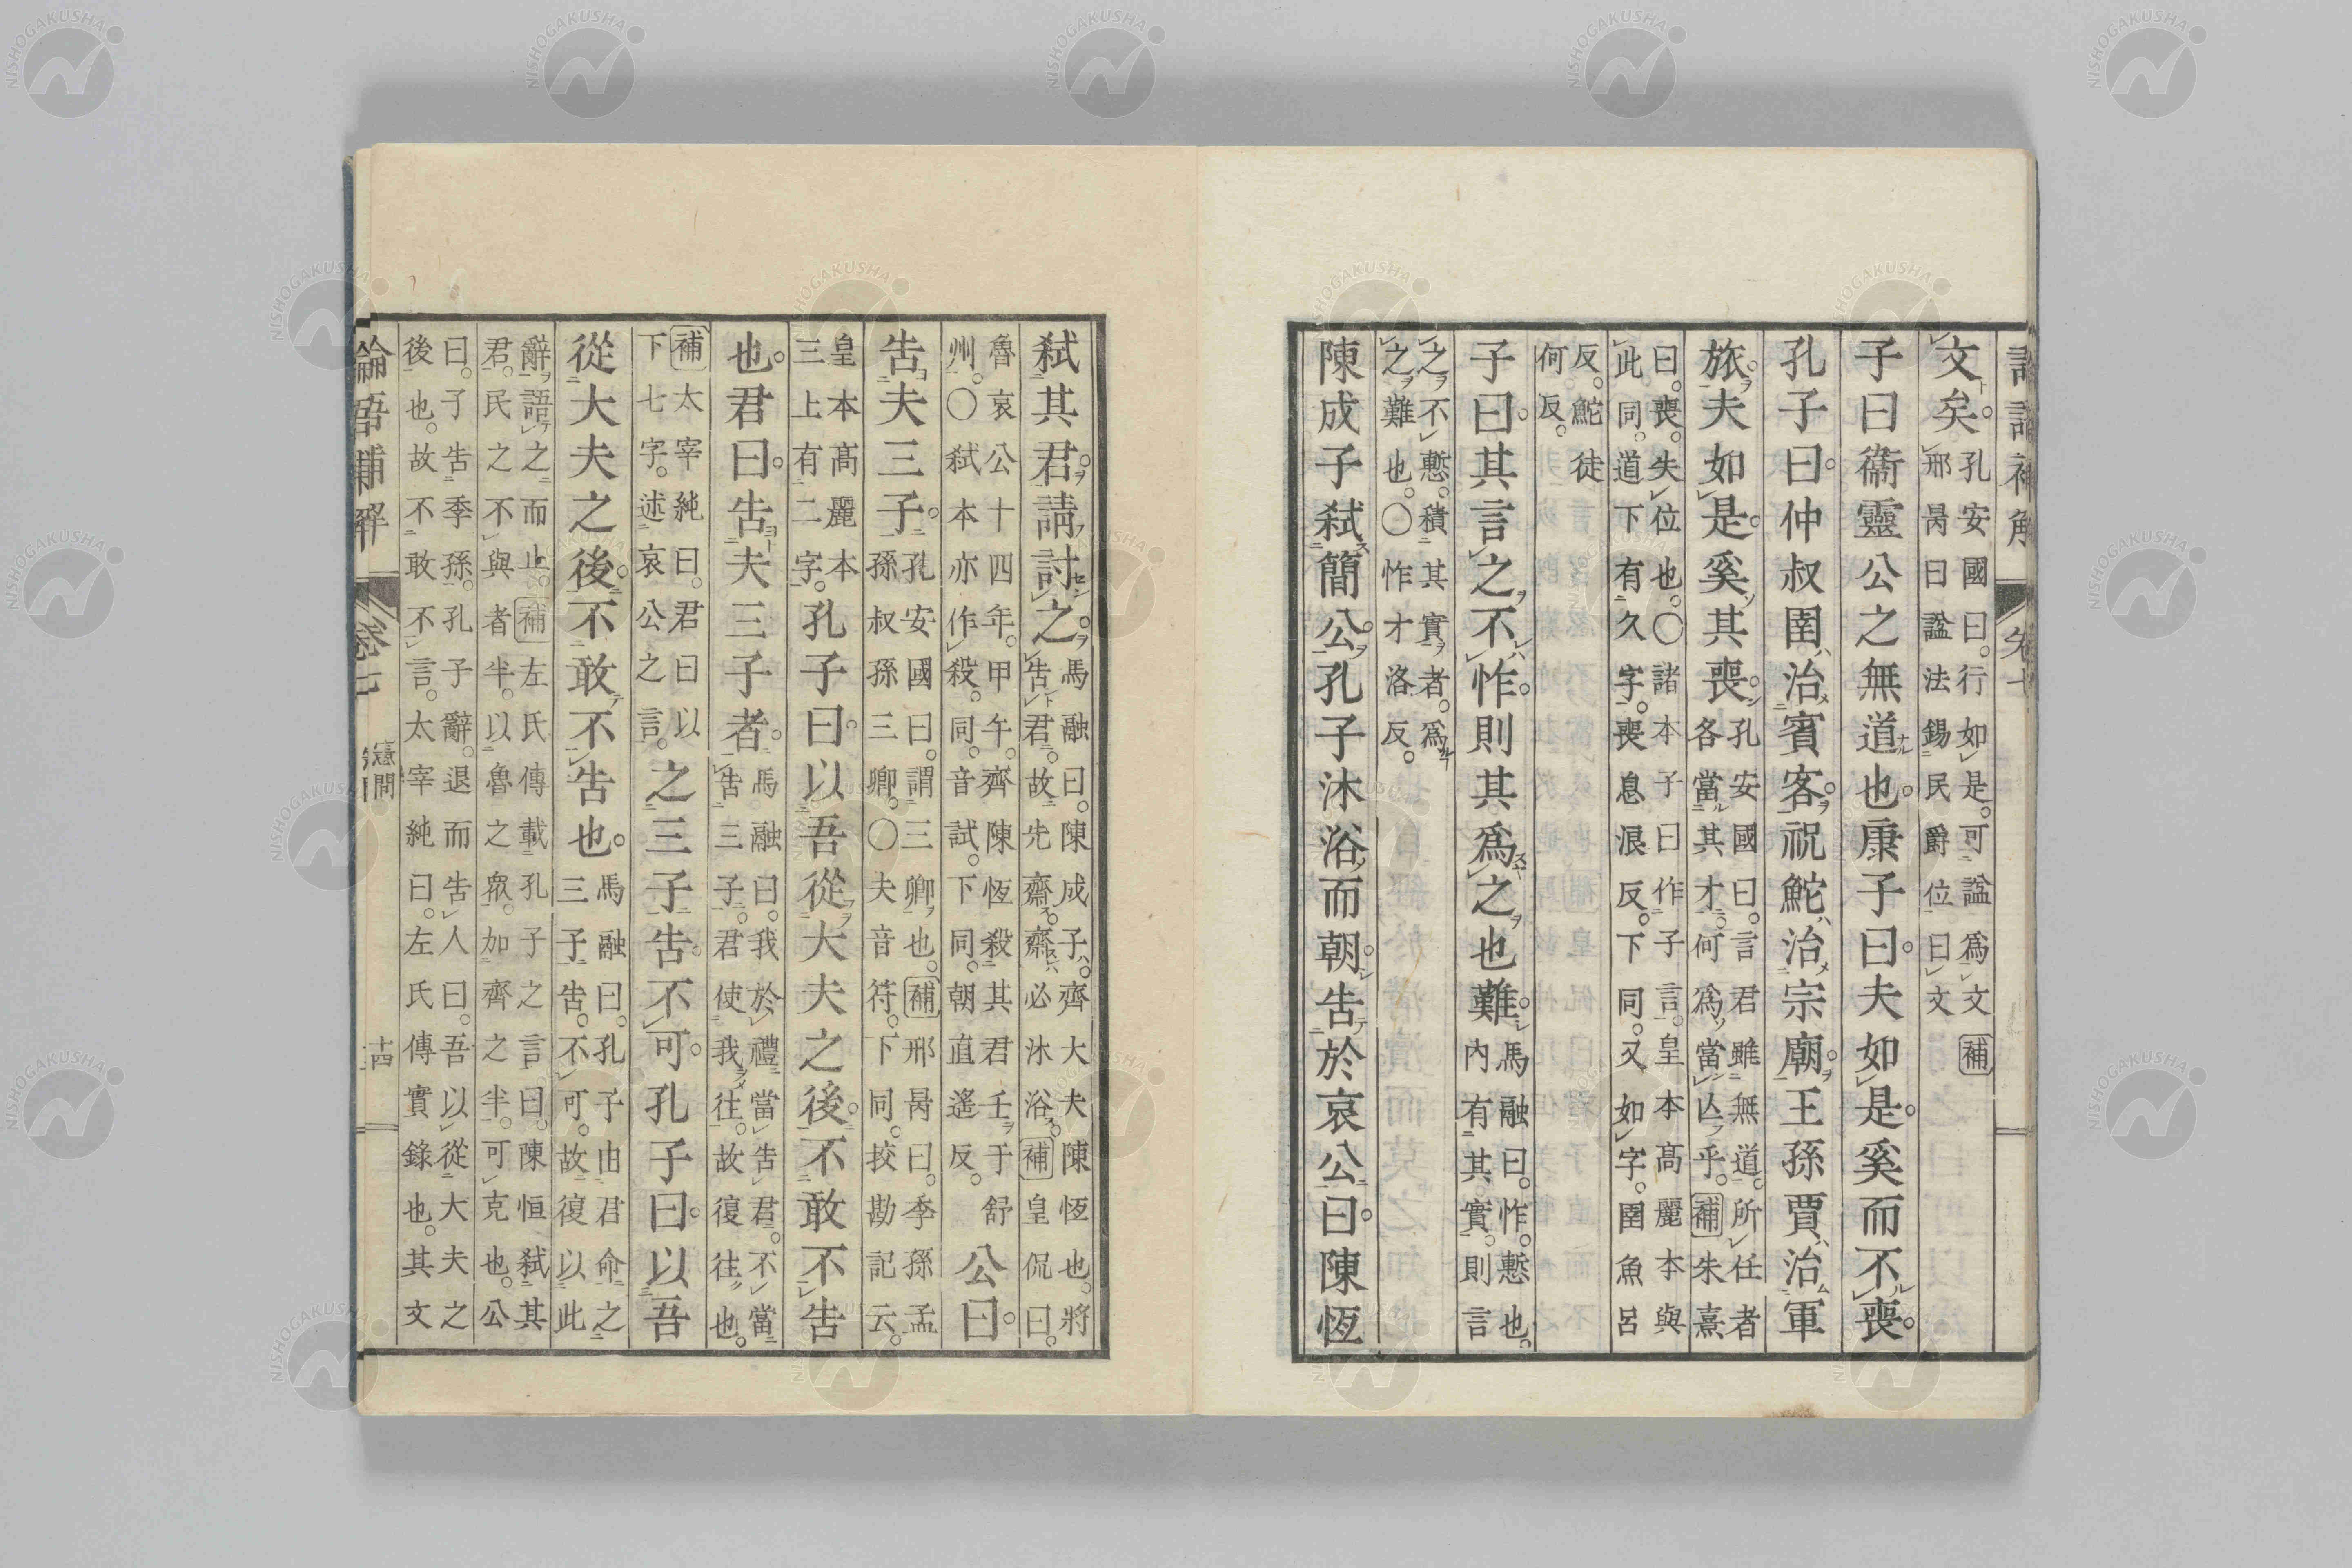 文矣。孔安國曰。行如是。可謚爲文 補
邢昺曰謚法錫民爵位曰文
子曰衞靈公之無道也。康子曰。夫如是。奚而不喪。
孔子曰。仲叔圉治賓客。祝鮀治宗廟。王孫賈治軍
旅。夫如是。奚其喪。孔安國曰。言君雖無道。所任者
各當其才。何爲當亾乎。補朱熹
曰。喪。失位也。〇諸本子曰作子言。皇本髙麗本與
此同。道下有久字。喪息浪反。下同。又如字。圉魚呂
反。鮀徒
何反。
子曰。其言之不怍。則其爲之也難。馬融曰。怍。慙也。
內有其實。則言
之不慙。積其實者。爲
之難也。〇怍才洛反。
陳成子弑簡公。孔子沐浴而朝。告於哀公曰。陳恆
弑其君。請討之。馬融曰。陳成子。齊大夫陳恆也。將
告君。故先齋。齋必沐浴。補皇侃曰。
魯哀公十四年。甲午。齊陳恆殺其君壬于舒
州。〇弑本亦作殺。同。音試。下同。朝直遙反。公曰。
告夫三子。孔安國曰。謂三卿也。補邢昺曰。季孫孟
孫叔孫三卿。〇夫音符。下同。挍勘記云。
皇本髙麗本
三上有二字。孔子曰。以吾從大夫之後。不敢不告
也。君曰。告夫三子者。馬融曰。我於禮當告君。不當
告三子。君使我往。故復往也。
補太宰純曰。君曰以
下七字。述哀公之言。之三子告。不可。孔子曰。以吾
從大夫之後。不敢不告也。馬融曰。孔子由君命之
三子告。不可。故復以此
辭語之而止。補左氏傳載孔子之言曰。陳恒弑其
君。民之不與者半。以魯之衆。加齊之半。可克也。公
曰。子告季孫。孔子辭。退而告人曰。吾以從大夫之
後也。故不敢不言。太宰純曰。左氏傳實錄也。其文
論語補解 卷七 憲問 十四